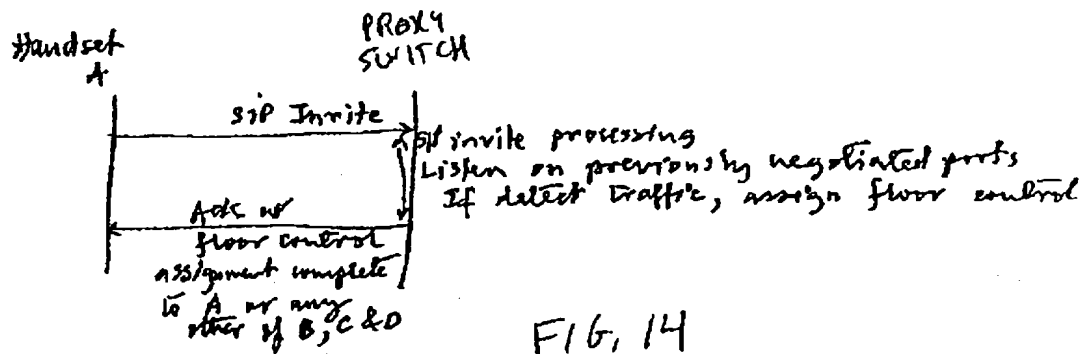 Handset
A
PROXY
SWITCH
SIP Invite
SIP invite processing
Listen on previously negotiated ports
If detect traffic, assign floor control
Ack w
floor control
assignment complete
to A or any
other of B, C & D
FIG. 14